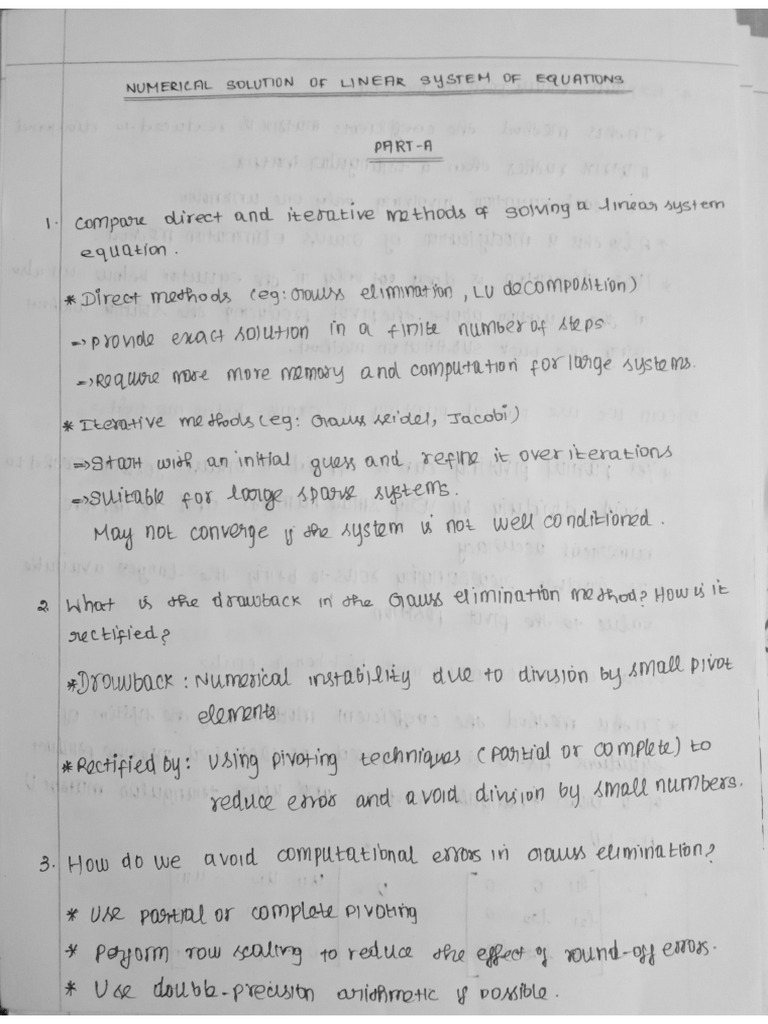 NUMERICAL SOLUTION OF LINEAR SYSTEM OF EQUATIONS
PART-A
1. Compare direct and iterative methods of solving a linear system
equation.
* Direct methods (eg: Gauss elimination, LU decomposition)
→ provide exact solution in a finite number of steps
→ Require more more memory and computation for large systems.
* Iterative methods (eg: Gauss seidel, Jacobi)
⇒ Start with an initial guess and refine it over iterations
⇒ Suitable for large sparse systems.
May not converge if the system is not well conditioned.
2. What is the drawback in the Gauss elimination method? How is it
rectified?
* Drawback: Numerical instability due to division by small pivot
elements
* Rectified by: Using pivoting techniques (partial or complete) to
reduce error and avoid division by small numbers.
3. How do we avoid computational errors in Gauss elimination?
* Use partial or complete pivoting
* Perform row scaling to reduce the effect of round-off errors.
* Use double-precision arithmetic if possible.